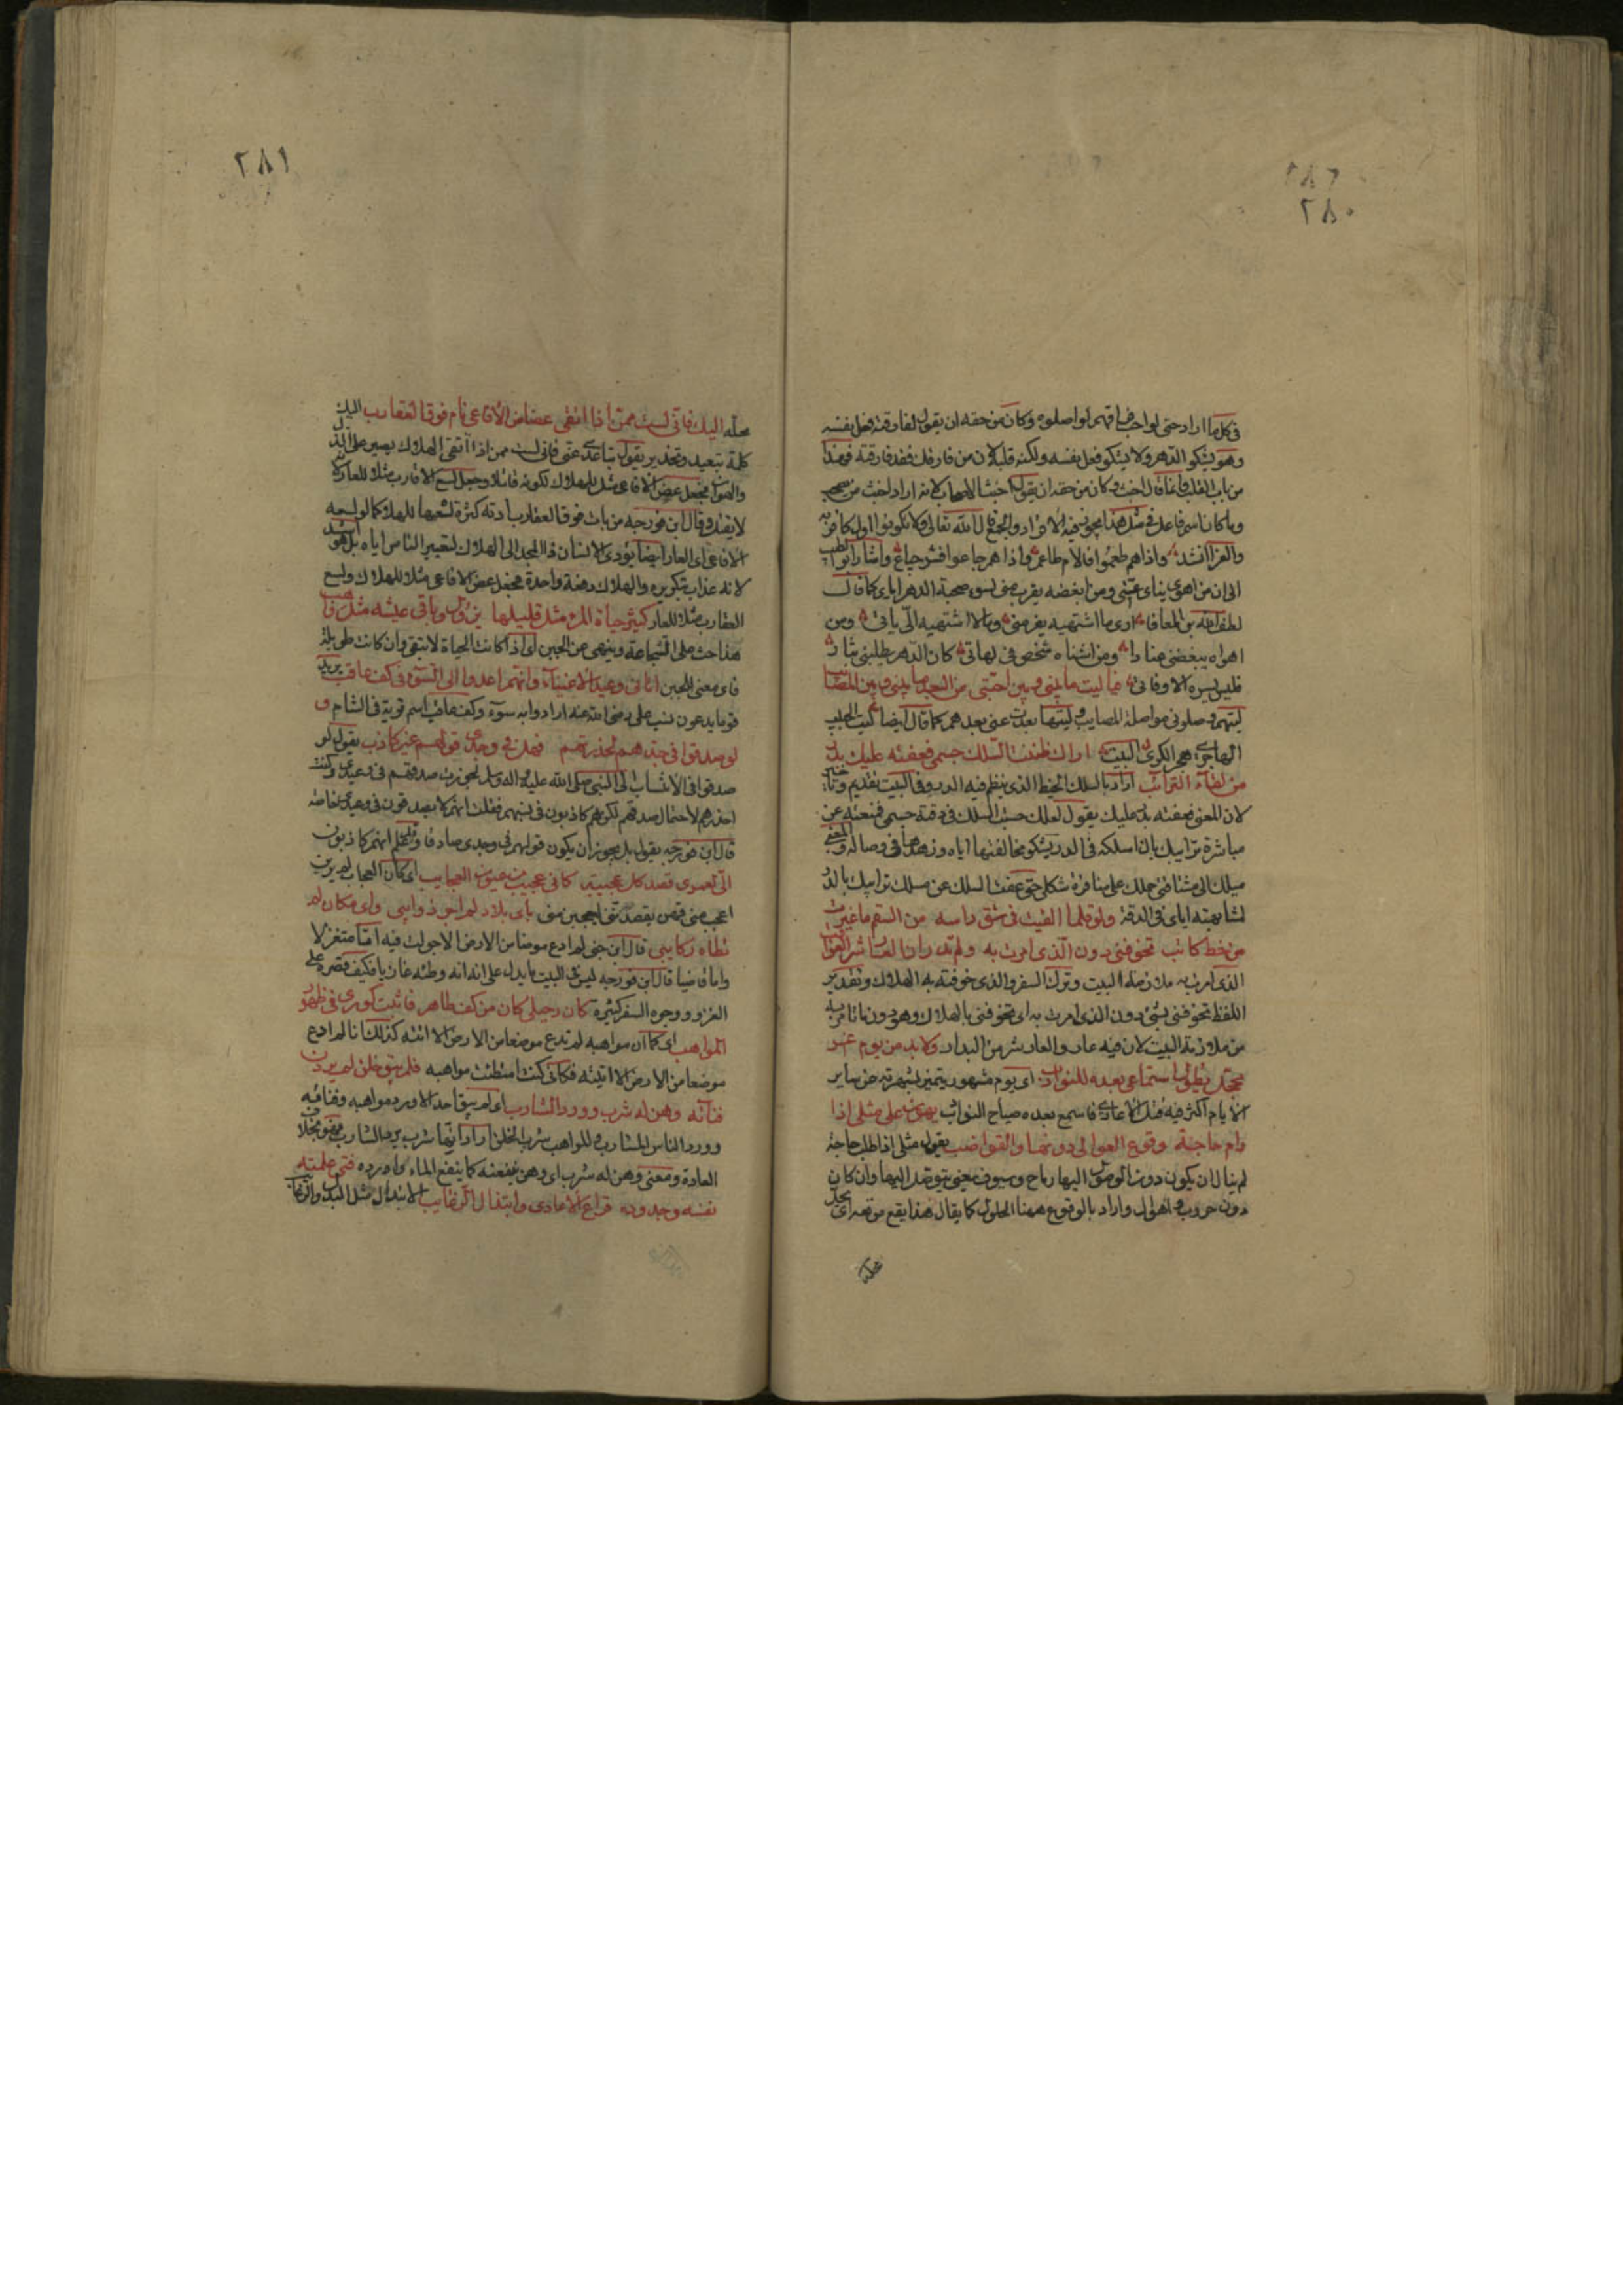 ٢٨٠
في كل ما اراد حتى لو احب فراقهم لواصلوه وكان من حقه ان يقول لفارقته فعل بنفسه
وهو يشكو الدهر ولا يشكو فعل نفسه ولكنه قلبه لان من فارقك فقد فارقته فهذا
من باب القلب وانما قال اخبث وكان من حقه ان يقول اخبث الاصحاب لانه اراد اخبث من يصحب
وما كان اسم فاعل في مثل هذا يجوز فيه الافراد والجمع قال الله تعالى ولا تكونوا اول كافر به
والفراء انشد واذا هم طعموا فالام طاعم واذا هم جاعوا فشر جياع واشار ابو الطيب
الى ان من اهوى يناى عني ومن ابغضه يقرب مني لسوء صحبة الدهر اياي كما قال
لطف الله بن المعافا ارى ما اشتهيه يفر مني وما لا اشتهيه الى ياتي ومن
اهواه يبغضني عنادا ومن اشناه شخص في لهاتي كان الدهر يطلبني بثار
فليس يسره الا وفاتي فيا ليت ما بيني وبين احبتي من البعد ما بيني وبين المصائب
ليتهم وصلوني مواصلة المصايب وليتها بعدت عني بعدهم كما قال ايضا ليت الحبيب
الهاجري هجر الكرى البيت اراك ظننت السلك جسمي فعقته عليك بدر
من لقاء الترائب اراد بالسلك الخيط الذي ينظم فيه الدر وفي البيت تقديم وتاخير
لان المعنى فعقته بدر عليك يقول لعلك حسبت السلك في دقة جسمي فمنعته عن
مباشرة ترايبك بان اسلكته في الدر يشكو مخالفتها اياه وزهدها في وصاله والمعنى
ميلك الى مشاقتي حملك على منافرة شكلي حتى عقت السلك عن مسك ترايبك بالدر
لمشابهته اياي في الدقة ولو قلما القيت في شق راسه من السقم ما غيرت
من خط كاتب تخوفني دون الذي امرت به ولم تدر ان العار شر العواقب
الذي امرت به ملازمة البيت وترك السفر والذي خوفته به الهلاك وتقدير
اللفظ تخوفني بشئ دون الذي امرت به اي تخوفني بالهلاك وهو دون ما تامر به
من ملازمة البيت لان فيه عار والعار شر من البدار ولا بد من يوم اغر
محجل يطول استماعي بعده للنوادب اي يوم مشهور يتميز بشهرته عن ساير
الايام اكثر فيه قتل الاعادي فاسمع بعده صياح النوادب يهون على مثلي اذا
رام حاجة وقوع العوالي دونها والقواضب يقول مثلي اذا طلب حاجة
لم يبال ان يكون دون الوصول اليها رماح وسيوف يعني يتوصل اليها وان كان
دون حروب واهوال واراد بالوقوع ههنا الحلول كما يقال هذا يقع موقعه اي يحل
محله
٢٨١
محله اليك فاني لست ممن اذا اتقى عضاض الافاعي نام فوق العقارب اليك
كلمة تبعيد وتحذير يقول تباعدي عني فاني لست ممن اذا اتقى الهلاك يصير على الذل
والهوان فجعل عض الافاعي مثلا للهلاك لكونه قاتلا وجعل لسع العقارب مثلا للعار لانه
لا يقتل وقال ابن فورجه من بات فوق العقارب ادته كثرة لسعها للهلاك كما لو لسعه
الافاعي اي العار ايضا يؤدي الانسان ذا المجد الى الهلاك لتعيير الناس اياه بل هو اشد
لانه عذاب يتكرر والهلاك دفعة واحدة فجعل عض الافاعي مثلا للهلاك ولسع
العقارب مثلا للعار كثير حياة المرء مثل قليلها يزول وباقي عيشه مثل ذاهب
هذا حث على الشجاعة وينهى عن الجبن اي اذا كانت الحياة لا تبقى وان كانت طويلة
فاى معنى للجبن اتاني وعيد الادعياء وانهم اعدوا لي السودان في كفر عاقب يريد
قوما يدعون نسب علي رضي الله عنه ارادوا به سوء وكفر عاقب اسم قرية في الشام و
لو صدقوا في جدهم لحذرتهم فهل في وحدي قولهم غير كاذب يقول لو
صدقوا في الانتساب الى النبي صلى الله عليه واله وسلم لجوزت صدقهم في وعيدي وكنت
احذرهم لاحتمال صدقهم لكنهم كاذبون في نسبهم فقلت انهم لا يصدقون في وعيدي خاصة
قال ابن فورجه يقول بل يجوز ان يكون قولهم في وحدي صادقا وقد علم انهم كاذبون
الي لعمري قصد كل عجيبة كاني عجيب في عيون العجايب اي كان العجايب لم يرين
اعجب مني فهن يقصدنني لعجبهن مني باي بلاد لم اجر ذوابتي واي مكان لم
تطاه ركايبي قال ابن جني لم ادع موضعا من الارض الا جولت فيه اما متغزلا
واما غازيا قال ابن فورجه ليس في البيت ما يدل على انه وطئه غازيا فكيف قصره على
الغزو ووجوه السفر كثيرة كان رحيلي كان من كف طاهر فاثبت كوري في ظهور
المواهب اي كما ان مواهبه لم تدع موضعا من الارض الا اتته كذلك انا لم ادع
موضعا من الارض الا اتيته فكاني كنت امتطيت مواهبه فلم يبق خلق لم يردن
فناءه وهن له شرب ورود المشارب اي لم يبق احد الا ورد مواهبه وفناؤه
وورود الناس المشارب والمواهب شرب الخلق اراد انها شرب يرد الشارب
العادة ومعنى وهن له شرب اي وهن ينفعنه كما ينفع الماء وارده فتى علمته
نفسه وجدوده قراع الاعادي وابتذال الرغايب الابتذال مثل البذل والرغايب